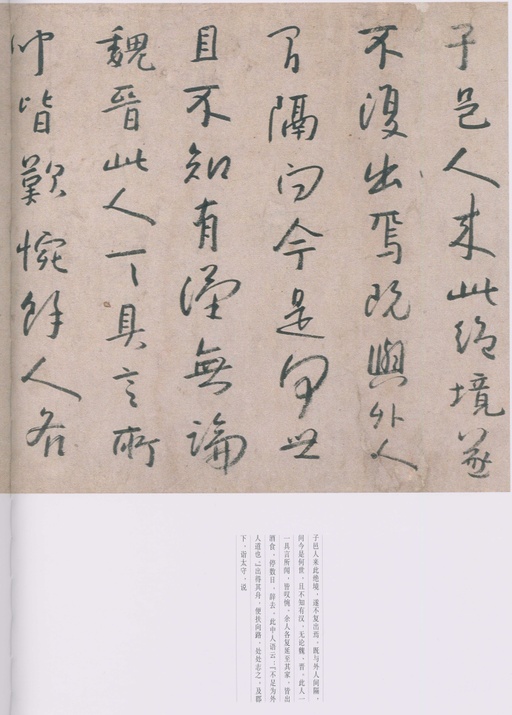 子邑人来此絕境遂
不復出焉既與外人
间隔问今是何世
且不知有漢無論
魏晉此人一一具言所
聞皆歎惋餘人各
子邑人来此绝境，遂不复出焉，既与外人间隔，
问今是何世，且不知有汉，无论魏、晋。此人一
一具言所闻，皆叹惋，余人各复延至其家，皆出
酒食，停数日，辞去，此中人语云：『不足为外
人道也。』出得其舟，便扶向路，处处志之，及郡
下，诣太守，说